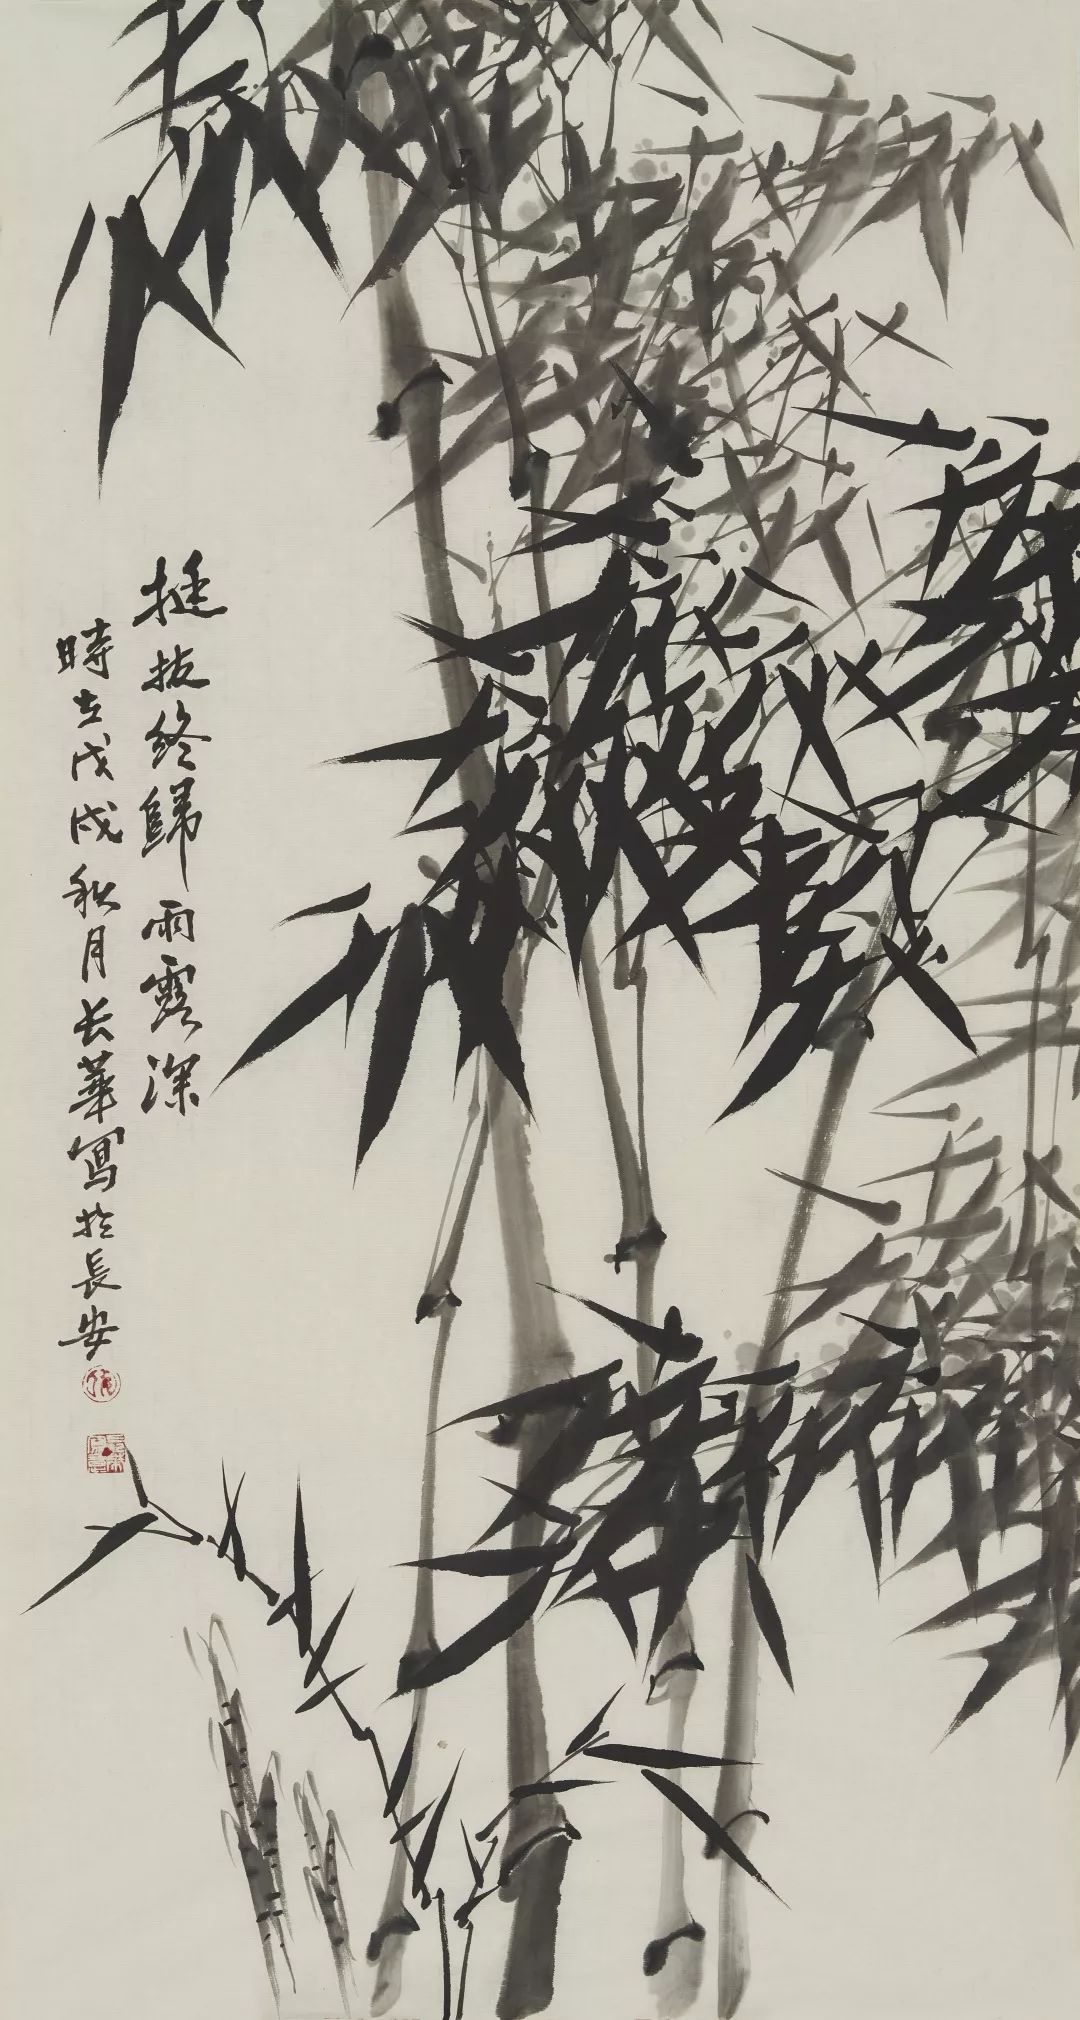 挺拔终歸雨露深
時在戊戌秋月长華寫於長安